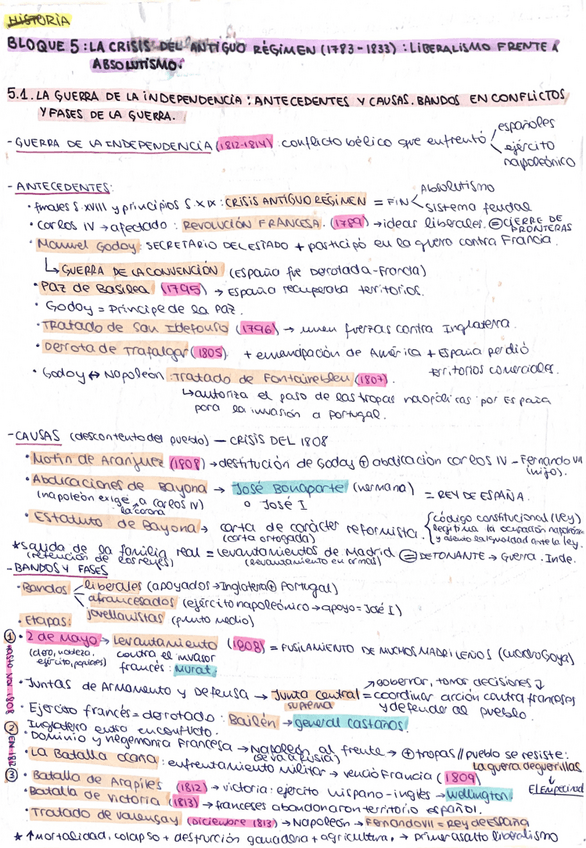 HISTORIA
BLOQUE 5: LA CRISIS DEL ANTIGUO RÉGIMEN (1783-1833): LIBERALISMO FRENTE A
ABSOLUTISMO.
5.1. LA GUERRA DE LA INDEPENDENCIA: ANTECEDENTES Y CAUSAS. BANDOS EN CONFLICTOS
Y FASES DE LA GUERRA.
- GUERRA DE LA INDEPENDENCIA (1812-1814) conflicto bélico que enfrentó
españoles
ejército
napoleónico
- ANTECEDENTES:
• finales S. XVIII y principios S. XIX: CRISIS ANTIGUO RÉGIMEN = FIN
Absolutismo
Sistema feudal
• Carlos IV → afectado: REVOLUCIÓN FRANCESA. (1789) → ideas liberales. = CIERRE DE
FRONTERAS
• Manuel Godoy: SECRETARIO DEL ESTADO + participó en la guerra contra Francia.
↳ GUERRA DE LA CONVENCIÓN (España fue derotada-Francia)
• Paz de Basilea (1795) → España recuperaba territorios.
• Godoy = Príncipe de la Paz.
• Tratado de San Ildefonso (1796) → unen fuerzas contra Inglaterra.
• Derrota de Trafalgar (1805) + emancipación de América + España perdió
territorios comerciales.
• Godoy ↔ Napoleón: Tratado de Fontainebleu (1807).
↳ autoriza el paso de las tropas napolicas por España
para la invasión a Portugal.
- CAUSAS (descontento del pueblo) — CRISIS DEL 1808
• Motín de Aranjuez (1808) → destitución de Godoy ⊕ abdicación Carlos IV - Fernando VII
(hijo).
• Abdicaciones de Bayona → José Bonaparte (hermano) = REY DE ESPAÑA.
(napoleón exige a Carlos IV) o José I
la corona
• Estatuto de Bayona → carta de carácter reformista.
(carta otorgada)
código constitucional (ley)
legitima la ocupación napoleón
y asentó la igualdad ante la ley.
* salida de la familia real = levantamientos de Madrid = DETONANTE → Guerra. Inde.
(retención de los reyes) (levantamiento en armas)
- BANDOS Y FASES
• Bandos
liberales (apoyados → Inglaterra ⊕ Portugal)
afrancesados (ejército napoleónico → apoyo = José I)
jovellanistas (punto medio)
• Etapas:
① • 2 de Mayo → Levantamiento (1808) = FUSILAMIENTO DE MUCHOS MADRILEÑOS (cuadro Goya)
(clero, nobleza, contra el invasor
ejército, populares) francés: Murat.
MAYO NOV 1808
• Juntas de Armamento y Defensa → Junta Central = coordinar acción contra franceses
suprema
gobernar, tomar decisiones
y defender al pueblo.
• Ejército francés = derrotado: Bailén → general Castaños.
② • Inglaterra entra en conflicto.
EN 1812
• Dominio y hegemonía Francesa → Napoleón al frente → ⊕ tropas // pueblo se resiste:
(se va a Rusia)
la guerra de guerrillas
• La Batalla Ocaña: enfrentamiento militar → venció Francia (1809)
El Empecinad
③ • Batalla de Arapiles (1812) → victoria: ejército hispano-inglés → Wellington.
• Batalla de Victoria (1813) → franceses abandonaron territorio español.
• Tratado de Valençay (Diciembre 1813) → Napoleón → Fernando VII = Rey de España
* ↑ mortalidad, colapso + destrucción ganadera + agricultura, → primer asalto liberalismo